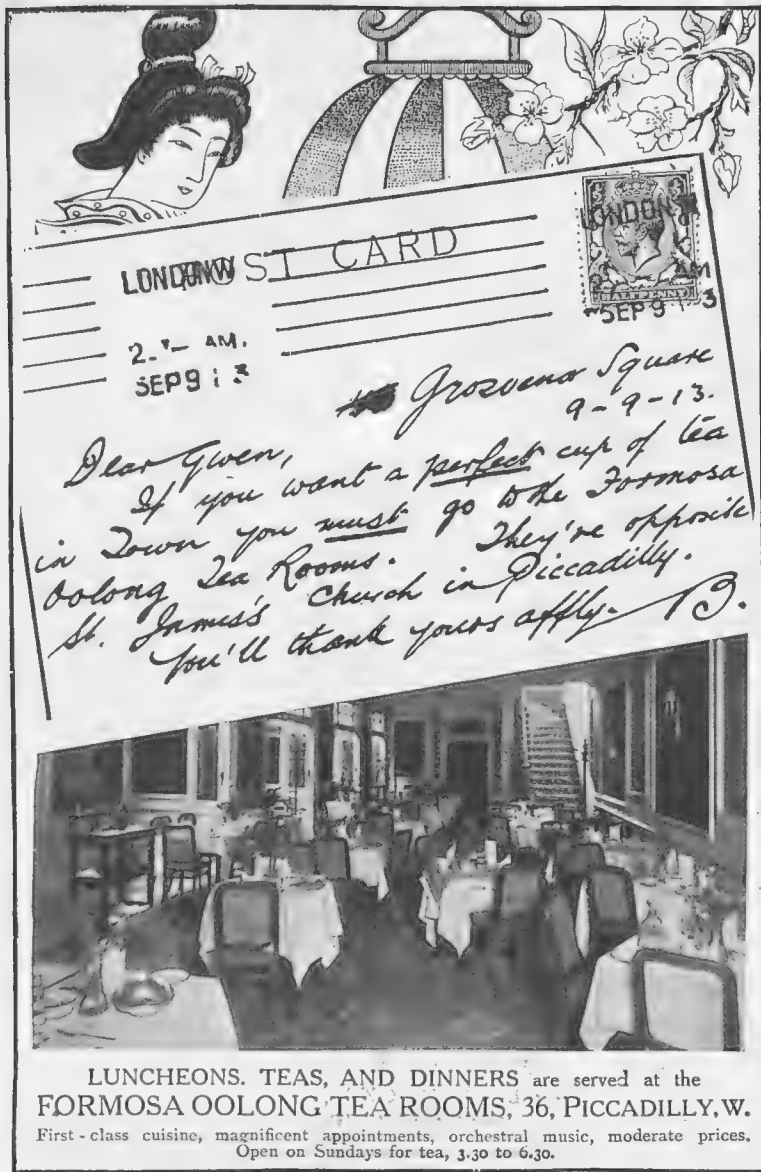 POST CARD
LONDON W
AM.
SEP 9 13
LONDON W
AM
HALFPENNY
SEP 9 13
Grosvenor Square
9-9-13.
Dear Gwen,
If you want a perfect cup of tea
in Town you must go to the Formosa
Oolong Tea Rooms. They're opposite
St. James's Church in Piccadilly.
You'll thank yours affly. B.
LUNCHEONS. TEAS, AND DINNERS are served at the
FORMOSA OOLONG TEA ROOMS, 36, PICCADILLY, W.
First-class cuisine, magnificent appointments, orchestral music, moderate prices.
Open on Sundays for tea, 3.30 to 6.30.